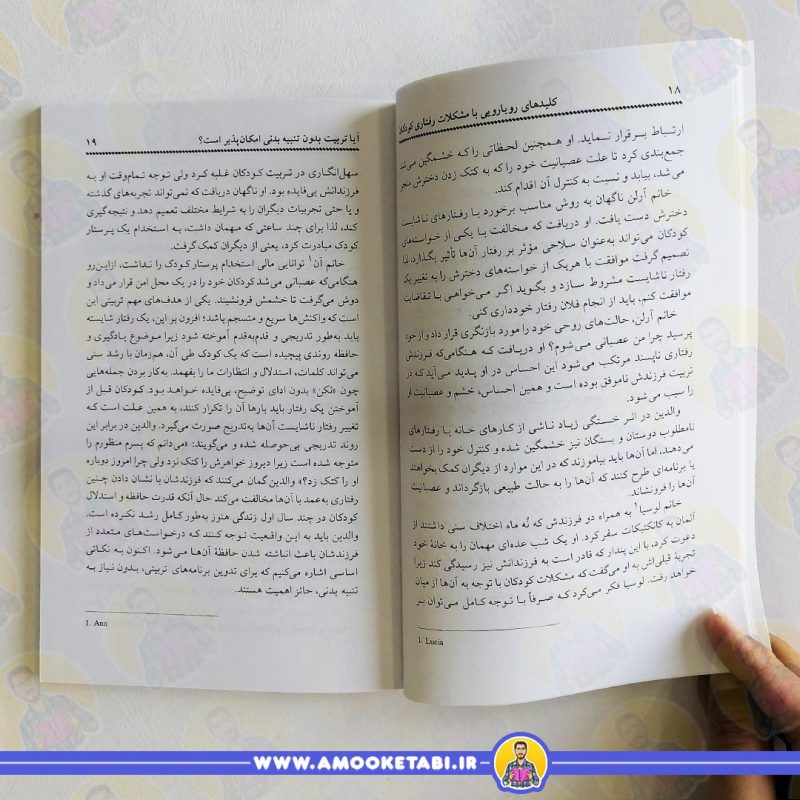 ۱۸
کلیدهای رویارویی با مشکلات رفتاری کودکان
ارتباط برقرار نماید. او همچنین لحظاتی را که خشمگین می‌شد
جمع‌بندی کرد تا علت عصبانیت خود را که به کتک زدن دخترش منجر
می‌شد، بیابد و نسبت به کنترل آن اقدام کند.
خانم آرلن ناگهان به روش مناسب برخورد با رفتارهای ناشایست
دخترش دست یافت. او دریافت که مخالفت با یکی از خواسته‌های
کودکان می‌تواند به‌عنوان سلاحی مؤثر بر رفتار آن‌ها تأثیر بگذارد، لذا
تصمیم گرفت موافقت با هریک از خواسته‌های دخترش را به تغییر یک
رفتار ناشایست مشروط سازد و بگوید اگر می‌خواهی با تقاضایت
موافقت کنم، باید از انجام فلان رفتار خودداری کنی.
خانم آرلن، حالت‌های روحی خود را مورد بازنگری قرار داد و از خود
پرسید چرا من عصبانی می‌شوم؟ او دریافت که هنگامی‌که فرزندش
رفتاری ناپسند مرتکب می‌شود این احساس در او پدید می‌آید که در
تربیت فرزندش ناموفق بوده است و همین احساس، خشم و عصبانیت او
را سبب می‌شود.
والدین در اثر خستگی زیاد ناشی از کارهای خانه یا رفتارهای
نامطلوب دوستان و بستگان نیز خشمگین شده و کنترل خود را از دست
می‌دهند، اما آن‌ها باید بیاموزند که در این موارد از دیگران کمک بخواهند
یا برنامه‌ای طرح کنند که آن‌ها را به حالت طبیعی بازگرداند و عصبانیت
آن‌ها را فرونشاند.
خانم لوسیا۱ به همراه دو فرزندش که نُه ماه اختلاف سنی داشتند از
آلمان به کانکتیکات سفر کرد. او یک شب عده‌ای مهمان را به خانهٔ خود
دعوت کرد، با این پندار که قادر است به فرزندانش نیز رسیدگی کند زیرا
تجربهٔ قبلی‌اش به او می‌گفت که مشکلات کودکان با توجه به آن‌ها از میان
خواهد رفت. لوسیا فکر می‌کرد که صرفاً با توجه کامل می‌توان بر
1. Lucia
آیا تربیت بدون تنبیه بدنی امکان‌پذیر است؟
۱۹
سهل‌انگاری در تربیت کودکان غلبه کرد ولی توجه تمام‌وقت او به
فرزندانش بی‌فایده بود. او ناگهان دریافت که نمی‌تواند تجربه‌های گذشته
و یا حتی تجربیات دیگران را به شرایط مختلف تعمیم دهد و نتیجه‌گیری
کند، لذا برای چند ساعتی که مهمان داشت، به استخدام یک پرستار
کودک مبادرت کرد، یعنی از دیگران کمک گرفت.
خانم آن۱ توانایی مالی استخدام پرستار کودک را نداشت، ازاین‌رو
هنگامی‌که عصبانی می‌شد کودکان خود را در یک محل امن قرار می‌داد و
دوش می‌گرفت تا خشمش فرونشیند. یکی از هدف‌های مهم تربیتی این
است که واکنش‌ها سریع و منسجم باشد؛ افزون بر این، یک رفتار شایسته
باید به‌طور تدریجی و قدم‌به‌قدم آموخته شود زیرا موضوع یادگیری و
حافظه روندی پیچیده است که یک کودک طی آن، هم‌زمان با رشد سنی
می‌تواند کلمات، استدلال و انتظارات ما را بفهمد. به‌کار بردن جمله‌هایی
چون «نکن» بدون ادای توضیح، بی‌فایده خواهد بود. کودکان قبل از
آموختن یک رفتار باید بارها آن را تکرار کنند، به همین علت است که
تغییر رفتار ناشایست آن‌ها به‌تدریج صورت می‌گیرد. والدین در برابر این
روند تدریجی بی‌حوصله شده و می‌گویند: «می‌دانم که پسرم منظورم را
متوجه شده است زیرا دیروز خواهرش را کتک نزد ولی چرا امروز دوباره
او را کتک زد؟» والدین گمان می‌کنند که فرزندشان با نشان دادن چنین
رفتاری به‌عمد با آن‌ها مخالفت می‌کند حال آنکه قدرت حافظه و استدلال
کودکان در چند سال اول زندگی هنوز به‌طور کامل رشد نکرده است.
والدین باید به این واقعیت توجه کنند که درخواست‌های متعدد از
فرزندشان باعث انباشته شدن حافظهٔ آن‌ها می‌شود. اکنون به نکاتی
اساسی اشاره می‌کنیم که برای تدوین برنامه‌های تربیتی، بدون نیاز به
تنبیه بدنی، حائز اهمیت هستند.
1. Ann
WWW.AMOOKETABI.IR